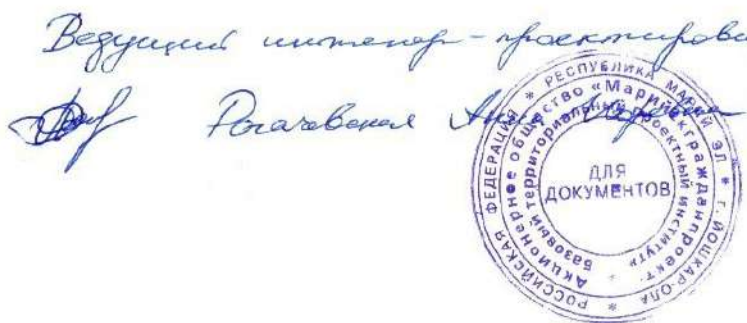 Ведущий инженер-проектирова
Рогачевская Анна
РОССИЙСКАЯ ФЕДЕРАЦИЯ * РЕСПУБЛИКА МАРИЙ ЭЛ * г. ЙОШКАР-ОЛА *
Акционерное общество «Марийскгражданпроект-
Базовый территориальный проектный институт» *
ДЛЯ
ДОКУМЕНТОВ